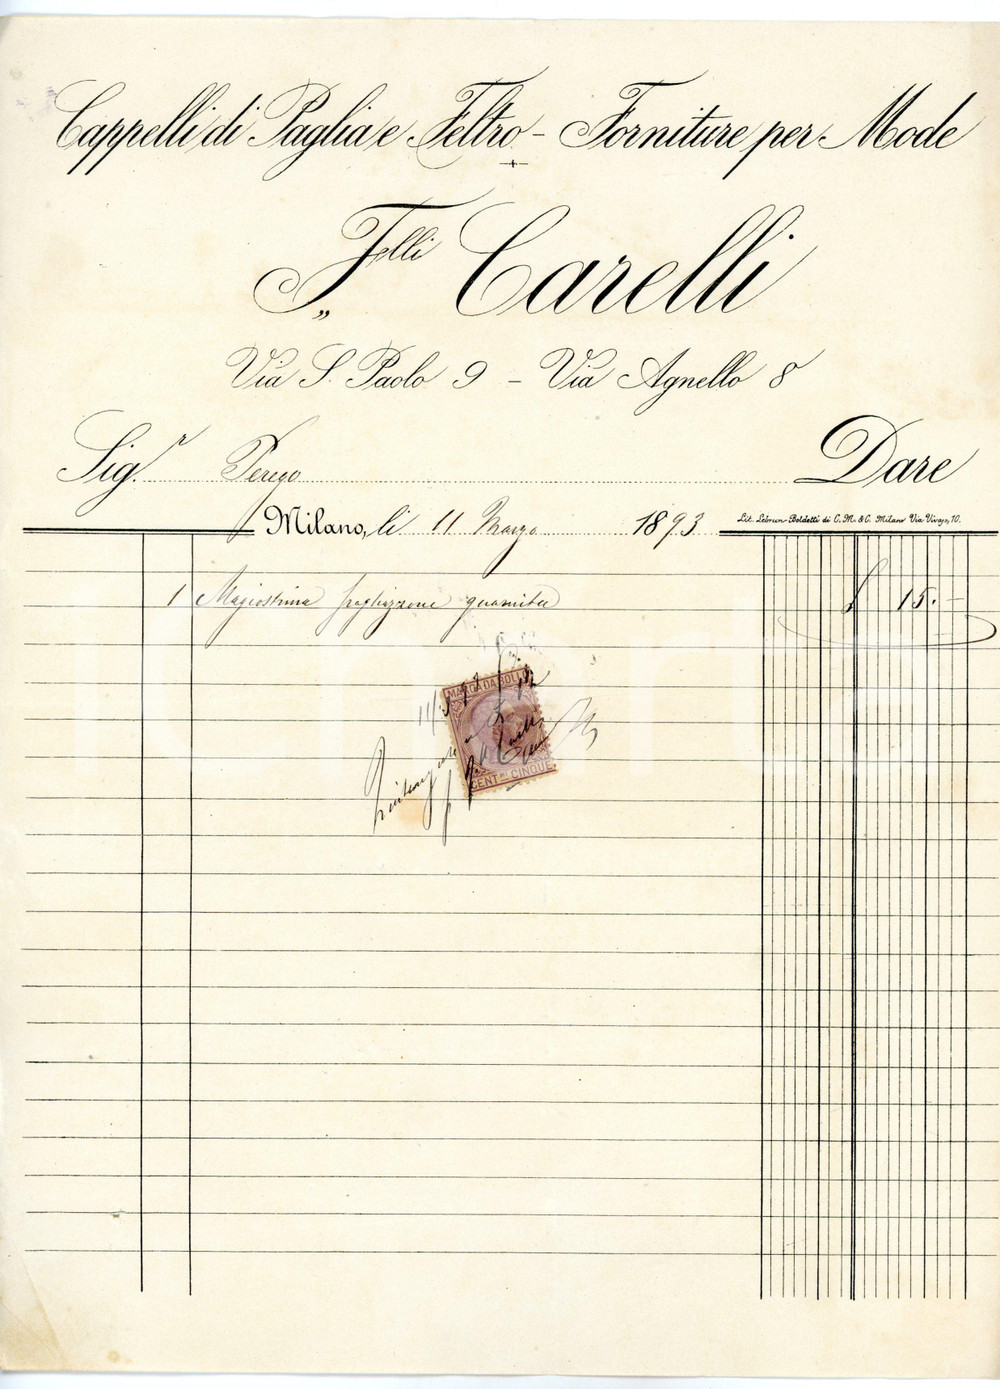 Cappelli di Paglia e Feltro - Forniture per Mode
F.lli Carelli
Via S. Paolo 9 - Via Agnello 8
Sig.r Perego Dare
Milano, li 11 Marzo 1893
Lit. Lebrun-Boldetti di C. M. & C. Milano Via Vivajo, 10.
1 Magiostrina guarnita £ 15.-
MARCA DA BOLLO
11/3 93
CENT.MI CINQUE